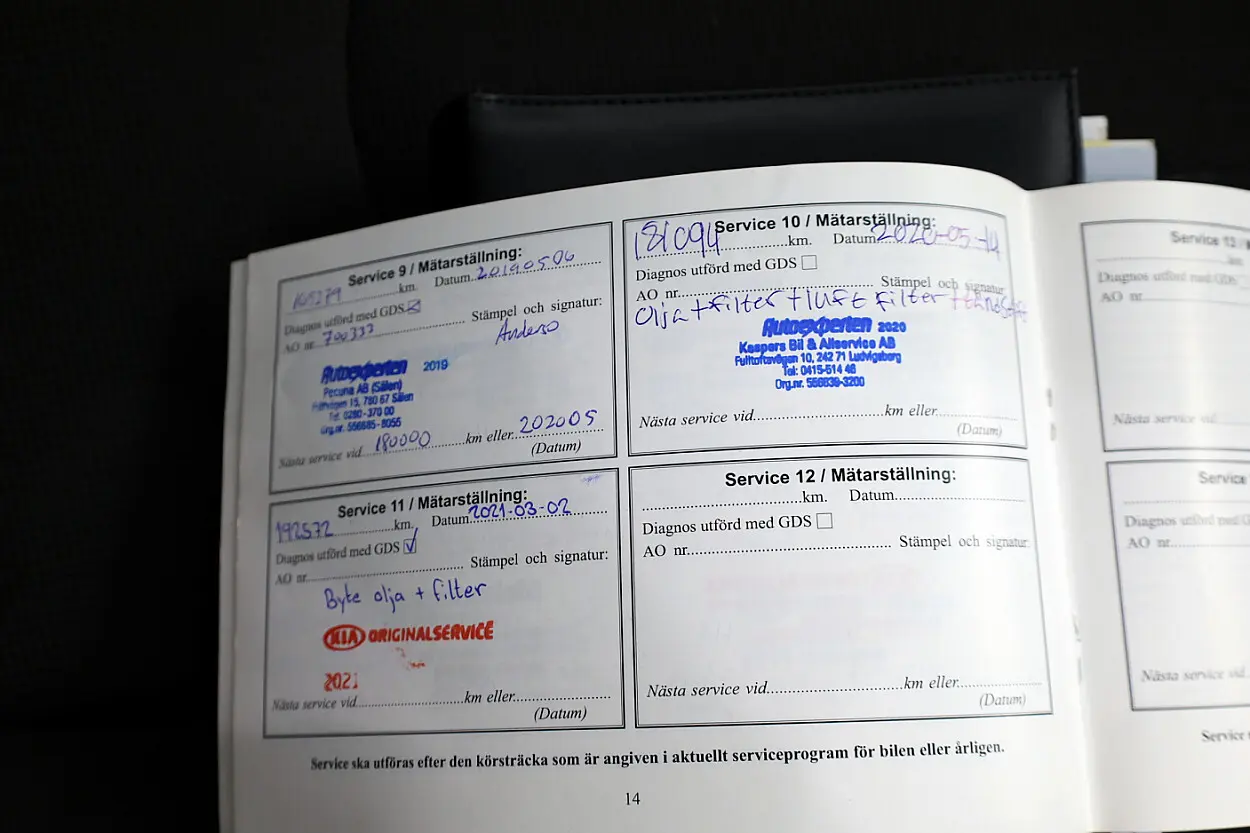 Service 9 / Mätarställning:
km. Datum 20190506
Diagnos utförd med GDS
AO nr. 700333 Stämpel och signatur:
Autoexperten 2019
Pecuna AB (Sälen)
15, 780 67 Sälen
Tel. 0280-370 00
Org.nr. 556685-8055
Nästa service vid 180000 km eller 202005
(Datum)
Service 10 / Mätarställning:
181094 km. Datum 2020-05-14
Diagnos utförd med GDS
AO nr. Stämpel och signatur:
Olja + filter + luft filter +
Autoexperten 2020
Kaspers Bil & Allservice AB
Fulltoftavägen 10, 242 71 Ludvigsborg
Tel: 0415-514 46
Org.nr. 556839-3200
Nästa service vid km eller
(Datum)
Service 11 / Mätarställning:
192572 km. Datum 2021-03-02
Diagnos utförd med GDS
AO nr. Stämpel och signatur:
Byte olja + filter
KIA ORIGINALSERVICE
2021
Nästa service vid km eller
(Datum)
Service 12 / Mätarställning:
km. Datum
Diagnos utförd med GDS
AO nr. Stämpel och signatur:
Nästa service vid km eller
(Datum)
Service ska utföras efter den körsträcka som är angiven i aktuellt serviceprogram för bilen eller årligen.
14
Service 13 /
km
Diagnos utförd med GDS
AO nr.
Nästa service vid
Service
Diagnos utförd med GDS
AO nr.
Nästa service vid
Service